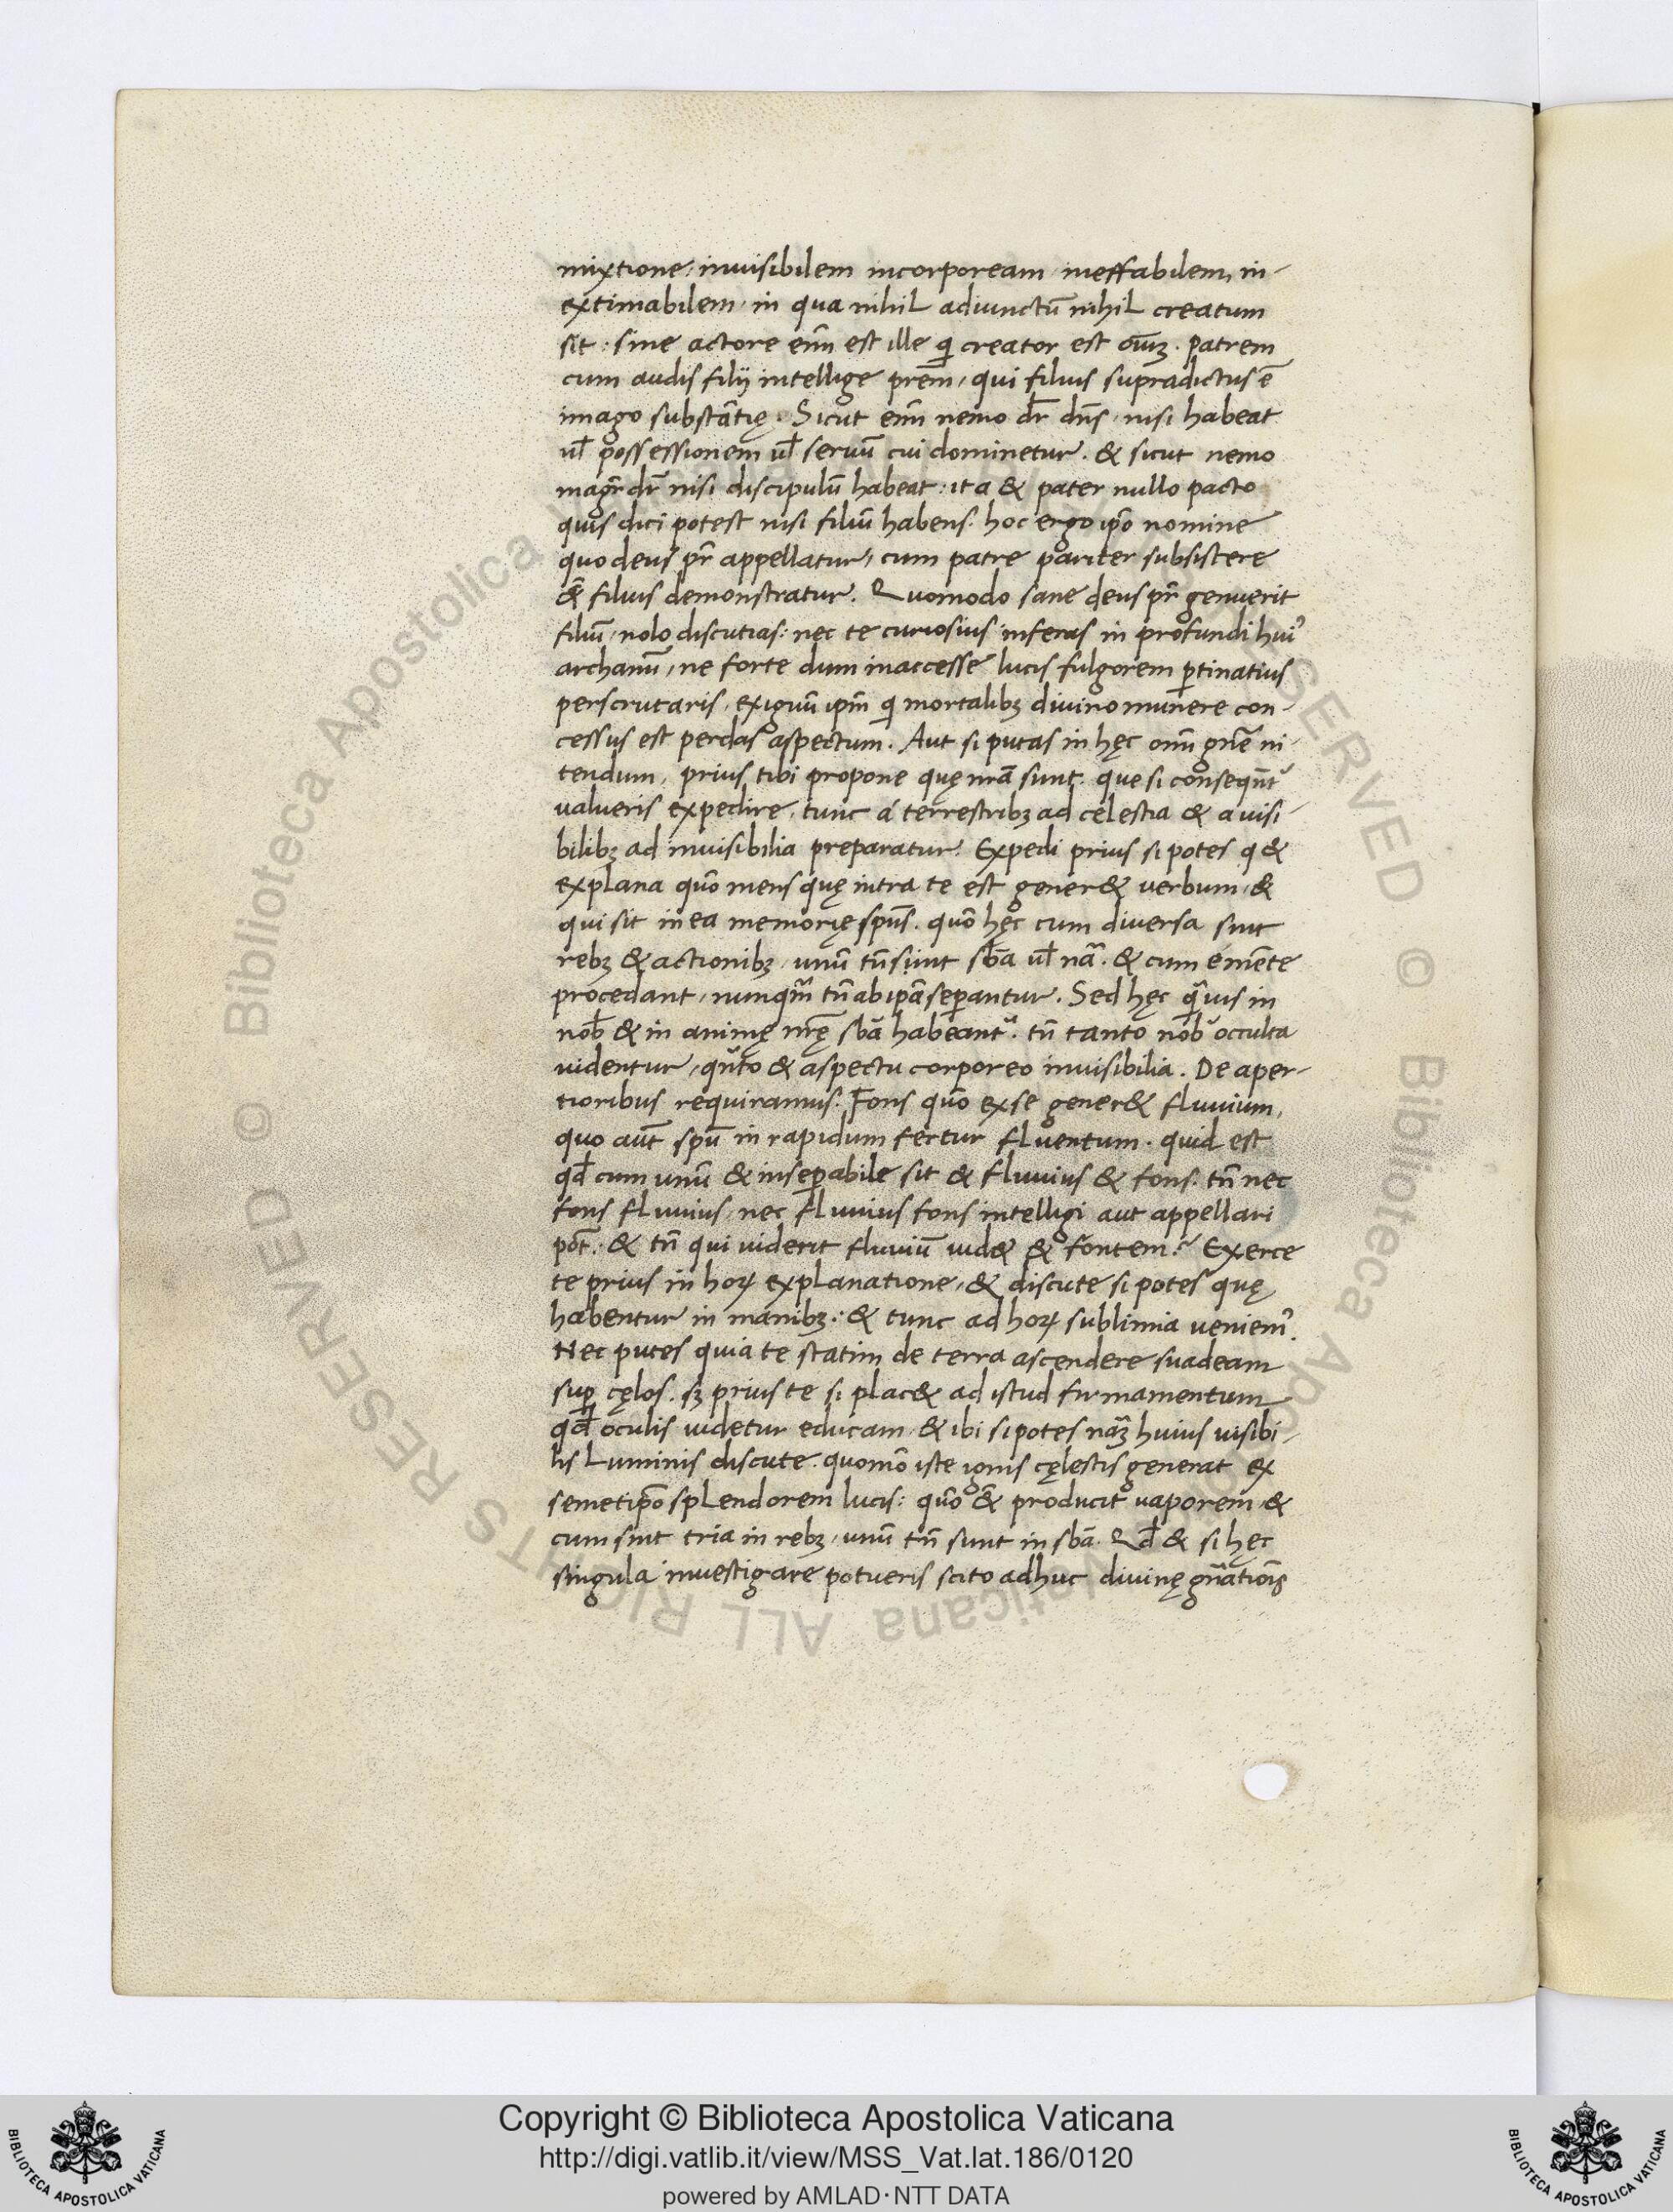 mixtione, invisibilem incorpoream ineffabilem, in-
extimabilem, in qua nihil adiunctū nihil creatum
sit: sine actore enī est ille qͥ creator est oīuꝫ. patrem
cum audis filij intellige prēm, qui filius supradictus ē
imago substātię. Sicut enī nemo dr̄ dn̄s, nisi habeat
ul̄ possessionem ul̄ servū cui dominetur. & sicut nemo
magr̄ dr̄ nisi discipulū habeat: ita & pater nullo pacto
quis dici potest nisi filiū habens. hoc ergo ip̄o nomine
quo deus pr̄ appellatur, cum patre pariter subsistere
&̄ filius demonstratur. Quomodo sane deus pr̄ genuerit
filiū, nolo discutias: nec te curiosius inseras in profundi huiꝰ
archanū, ne forte dum inaccesse lucis fulgorem ꝑtinatius
perscrutaris, exiguū ip̄m qͥ mortalibꝫ divino munere con-
cessus est perdas aspectum. Aut si putas in hęc om̄i gn̄e ni-
tendum, prius tibi propone quę nr̄a sunt. que si conseqn̄t᷑
valueris expedire, tunc a terrestribꝫ ad celestia & a visi-
bilibꝫ ad invisibilia preparatur. Expedi prius si potes q &
explana quō mens quę intra te est gener& verbum, &
qui sit in ea memorię sp̄us. quō hęc cum diversa sint
rebꝫ & actionibꝫ, unū tn̄ sunt sb̄a ul̄ nā. & cum e mēte
procedant, nunqm̄ tn̄ ab ip̄a seꝑantur. Sed hęc qͣvis in
nob̄ & in animę nr̄ę sb̄a habeant᷑. tn̄ tanto nob᷑ occulta
videntur, qn̄to & aspectu corporeo invisibilia. De aper-
tioribus requiramus. Fons quō ex se gener& fluvium,
quo aūt spū in rapidum fertur fluentum. quid est
qd̄ cum unū & inseꝑabile sit & fluvius & fons. tn̄ nec
fons fluvius, nec fluvius fons intelligi aut appellari
pōt. & tn̄ qui viderit fluviū vid& & fontem? Exerce
te prius in hoꝝ explanatione, & discute si potes quę
habentur in manibꝫ: & tunc ad hoꝝ sublimia veniemꝰ.
Nec putes quia te statim de terra ascendere suadeam
suꝑ cęlos. sꝫ prius te si plac& ad istud firmamentum
qd̄ oculis videtur educam, & ibi si potes nāꝫ huius visibi-
lis Luminis discute. quomō iste ignis cęlestis generat ex
semetip̄o splendorem lucis: quō &̄ producit vaporem, &
cum sint tria in rebꝫ, unū tn̄ sunt in sb̄a. Qd̄ & si hęc
singula investigare potueris scito adhuc divinę gn̄atiōis
Copyright © Biblioteca Apostolica Vaticana
http://digi.vatlib.it/view/MSS_Vat.lat.186/0120
powered by AMLAD·NTT DATA
BIBLIOTECA APOSTOLICA VATICANA
BIBLIOTECA APOSTOLICA VATICANA
© Biblioteca Apostolica Vaticana ALL RIGHTS RESERVED